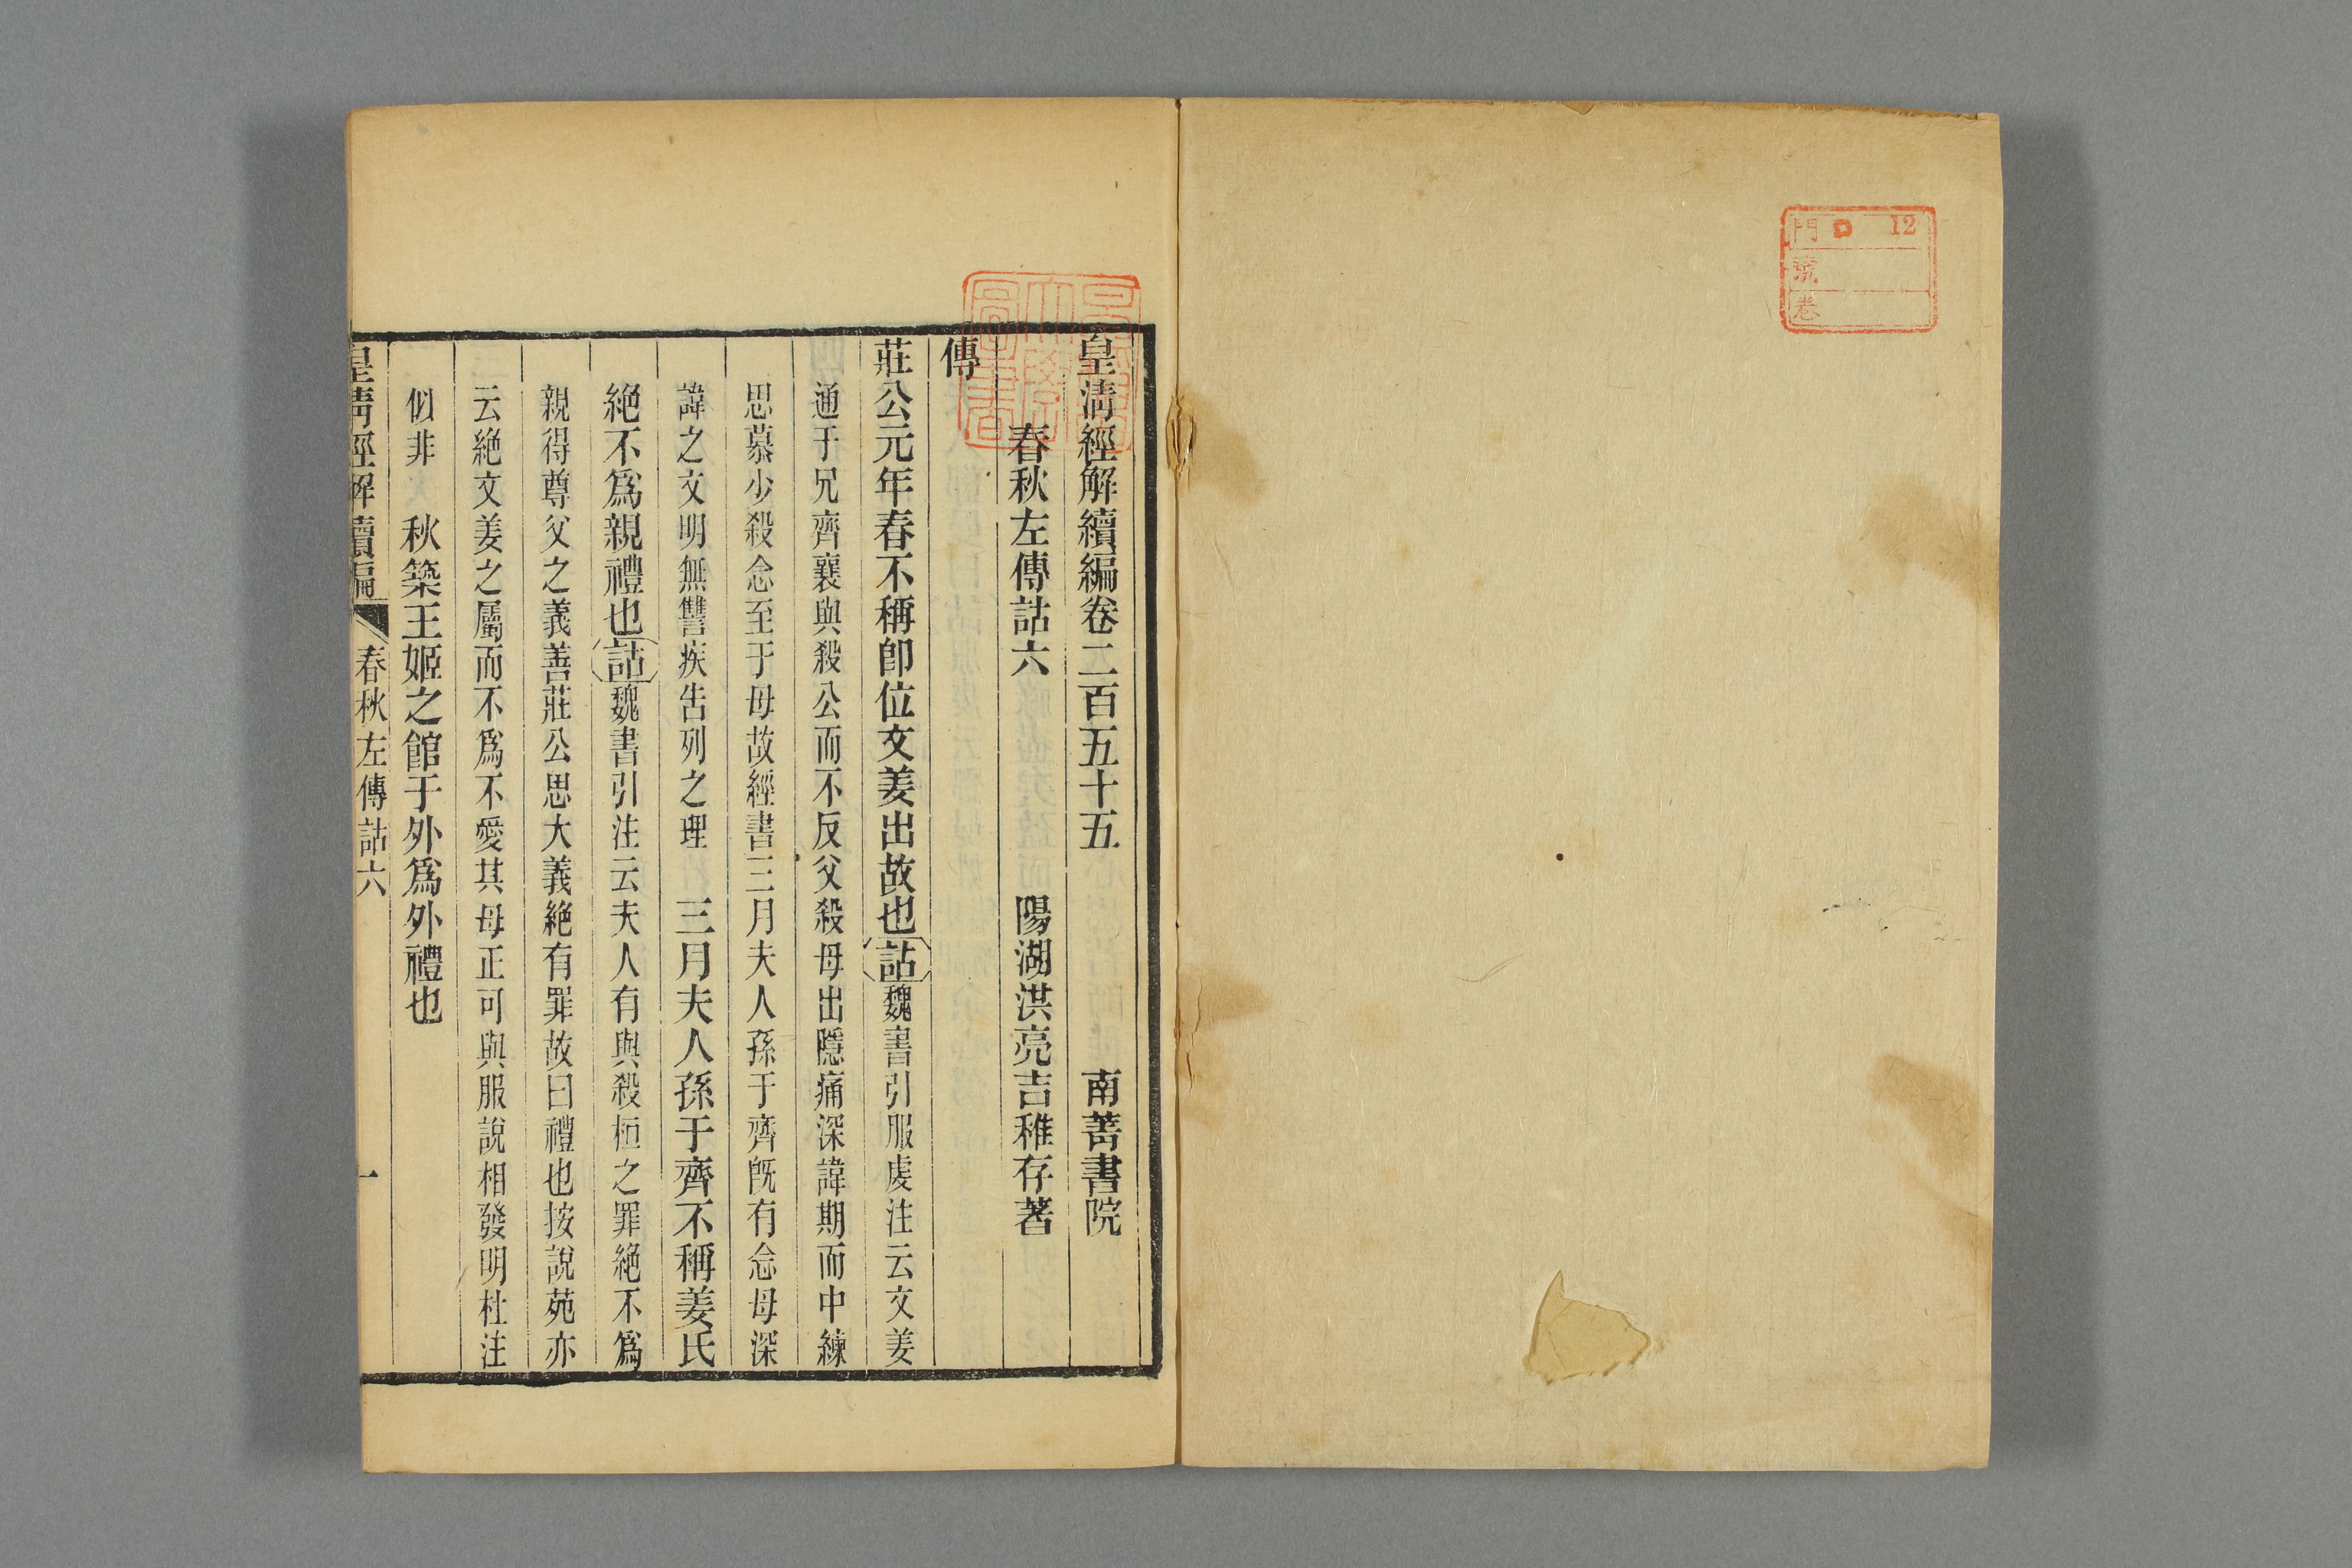 門 12
號
卷
皇清經解續編卷二百五十五 南菁書院
春秋左傳詁六 陽湖洪亮吉稚存著
傳
莊公元年春不稱卽位文姜出故也詁魏書引服虔注云文姜
通于兄齊襄與殺公而不反父殺母出隱痛深諱期而中練
思慕少殺念至于母故經書三月夫人孫于齊旣有念母深
諱之文明無讐疾告列之理 三月夫人孫于齊不稱姜氏
絕不爲親禮也詁魏書引注云夫人有與殺桓之罪絕不爲
親得尊父之義善莊公思大義絕有罪故曰禮也按說苑亦
云絕文姜之屬而不爲不愛其母正可與服說相發明杜注
似非 秋築王姬之館于外爲外禮也
皇清經解續編 春秋左傳詁六 一